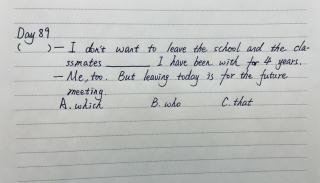 Day 89
( ) — I don't want to leave the school and the cla-
ssmates ______ I have been with for 4 years.
— Me, too. But leaving today is for the future
meeting.
A. which B. who C. that